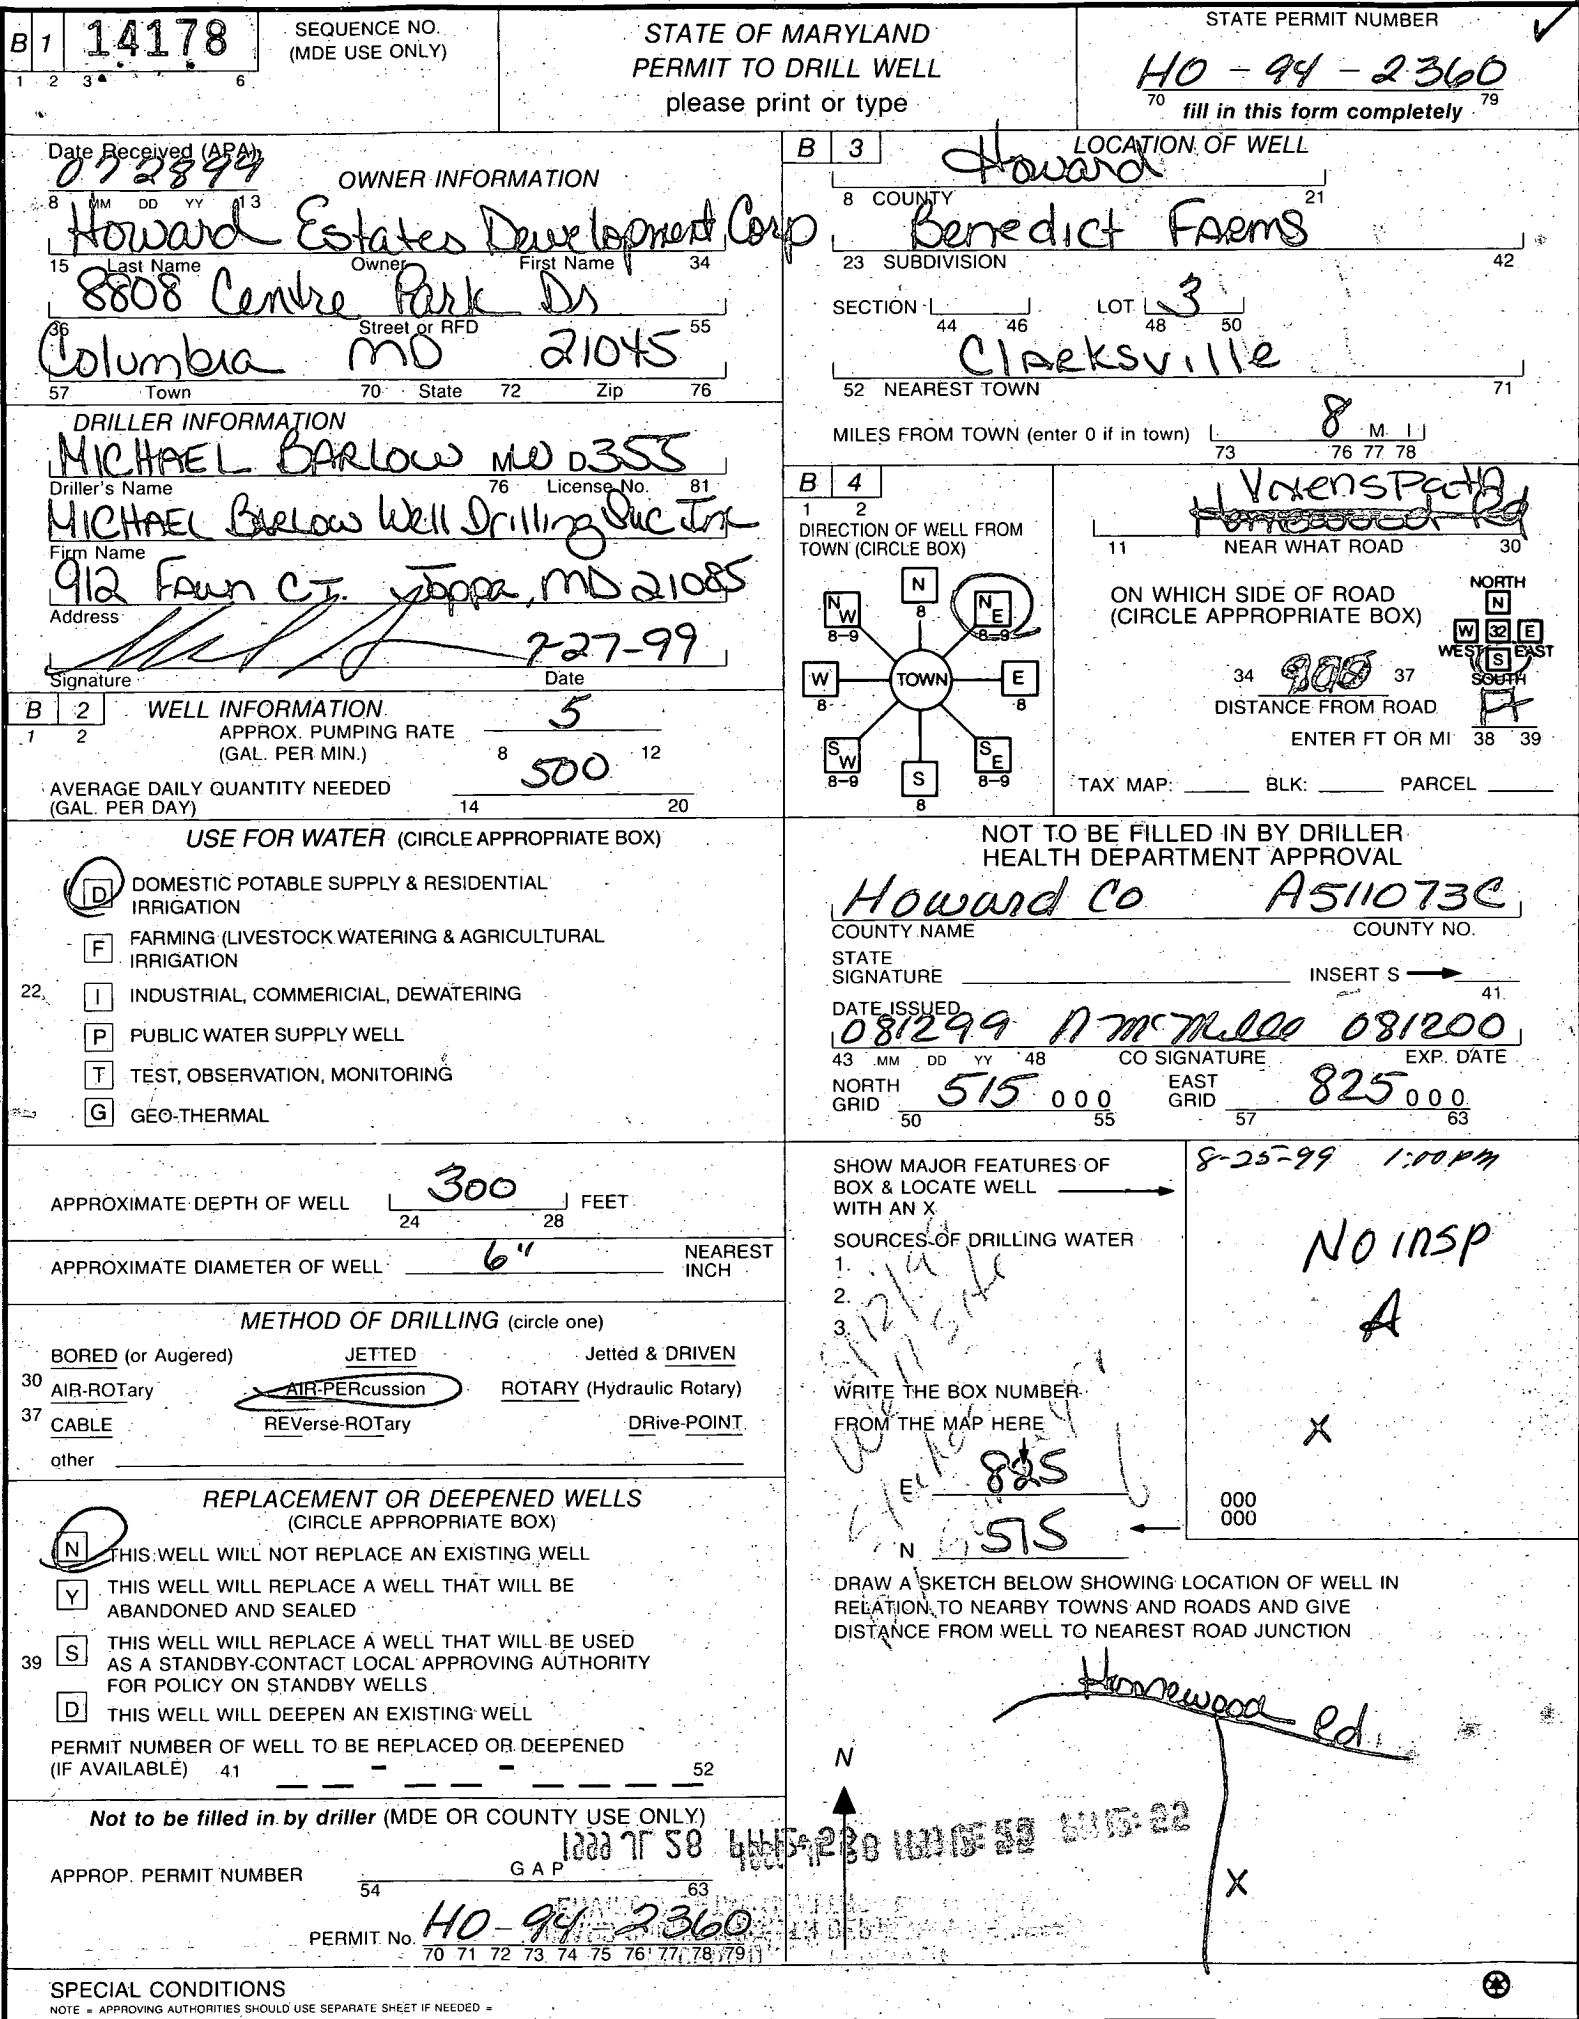 B 1 14178 SEQUENCE NO. (MDE USE ONLY)
1 2 3 6
STATE OF MARYLAND
PERMIT TO DRILL WELL
please print or type
STATE PERMIT NUMBER
HO - 94 - 2360
70 79
fill in this form completely
Date Received (APA)
072899
8 MM DD YY 13
OWNER INFORMATION
Howard Estates Development Corp
15 Last Name Owner First Name 34
8808 Centre Park Dr
36 Street or RFD 55
Columbia MD 21045
57 Town 70 State 72 Zip 76
DRILLER INFORMATION
MICHAEL BARLOW MWD355
Driller's Name 76 License No. 81
MICHAEL BARLOW Well Drilling Svc Inc
Firm Name
912 Fawn CT. Joppa, MD 21085
Address
7-27-99
Signature Date
B 2 WELL INFORMATION
1 2
APPROX. PUMPING RATE
(GAL. PER MIN.) 5
8 12
AVERAGE DAILY QUANTITY NEEDED
(GAL. PER DAY) 500
14 20
USE FOR WATER (CIRCLE APPROPRIATE BOX)
D DOMESTIC POTABLE SUPPLY & RESIDENTIAL
IRRIGATION
F FARMING (LIVESTOCK WATERING & AGRICULTURAL
IRRIGATION
22 I INDUSTRIAL, COMMERICIAL, DEWATERING
P PUBLIC WATER SUPPLY WELL
T TEST, OBSERVATION, MONITORING
G GEO-THERMAL
APPROXIMATE DEPTH OF WELL 300 FEET
24 28
APPROXIMATE DIAMETER OF WELL 6" NEAREST
INCH
METHOD OF DRILLING (circle one)
BORED (or Augered) JETTED Jetted & DRIVEN
30 AIR-ROTary AIR-PERcussion ROTARY (Hydraulic Rotary)
37 CABLE REVerse-ROTary DRive-POINT
other
REPLACEMENT OR DEEPENED WELLS
(CIRCLE APPROPRIATE BOX)
N THIS WELL WILL NOT REPLACE AN EXISTING WELL
Y THIS WELL WILL REPLACE A WELL THAT WILL BE
ABANDONED AND SEALED
39 S THIS WELL WILL REPLACE A WELL THAT WILL BE USED
AS A STANDBY-CONTACT LOCAL APPROVING AUTHORITY
FOR POLICY ON STANDBY WELLS
D THIS WELL WILL DEEPEN AN EXISTING WELL
PERMIT NUMBER OF WELL TO BE REPLACED OR DEEPENED
(IF AVAILABLE) 41 - - 52
Not to be filled in by driller (MDE OR COUNTY USE ONLY)
APPROP. PERMIT NUMBER G A P
54 63
PERMIT No. HO-94-2360
70 71 72 73 74 75 76 77 78 79
SPECIAL CONDITIONS
NOTE = APPROVING AUTHORITIES SHOULD USE SEPARATE SHEET IF NEEDED =
B 3 LOCATION OF WELL
Howard
8 COUNTY 21
Benedict Farms
23 SUBDIVISION 42
SECTION LOT 3
44 46 48 50
Clarksville
52 NEAREST TOWN 71
MILES FROM TOWN (enter 0 if in town) 8 M I
73 76 77 78
B 4
1 2
DIRECTION OF WELL FROM
TOWN (CIRCLE BOX)
N 8
NW 8-9
NE 8-9
W 8
TOWN
E 8
SW 8-9
SE 8-9
S 8
Vixens Path
Homewood Rd
11 NEAR WHAT ROAD 30
ON WHICH SIDE OF ROAD
(CIRCLE APPROPRIATE BOX)
NORTH
N
W 32 E
WEST EAST
S
SOUTH
34 37
DISTANCE FROM ROAD
ENTER FT OR MI Ft
38 39
TAX MAP: BLK: PARCEL
NOT TO BE FILLED IN BY DRILLER
HEALTH DEPARTMENT APPROVAL
Howard Co A511073C
COUNTY NAME COUNTY NO.
STATE
SIGNATURE INSERT S
41
DATE ISSUED
081299 081200
43 MM DD YY 48 CO SIGNATURE EXP. DATE
NORTH GRID 515 000 EAST GRID 825 000
50 55 57 63
SHOW MAJOR FEATURES OF
BOX & LOCATE WELL
WITH AN X
8-25-99 1:00 PM
No insp
A
X
000
000
SOURCES OF DRILLING WATER
1.
2.
3.
WRITE THE BOX NUMBER
FROM THE MAP HERE
E 825
N 515
DRAW A SKETCH BELOW SHOWING LOCATION OF WELL IN
RELATION TO NEARBY TOWNS AND ROADS AND GIVE
DISTANCE FROM WELL TO NEAREST ROAD JUNCTION
Homewood Rd.
N
X